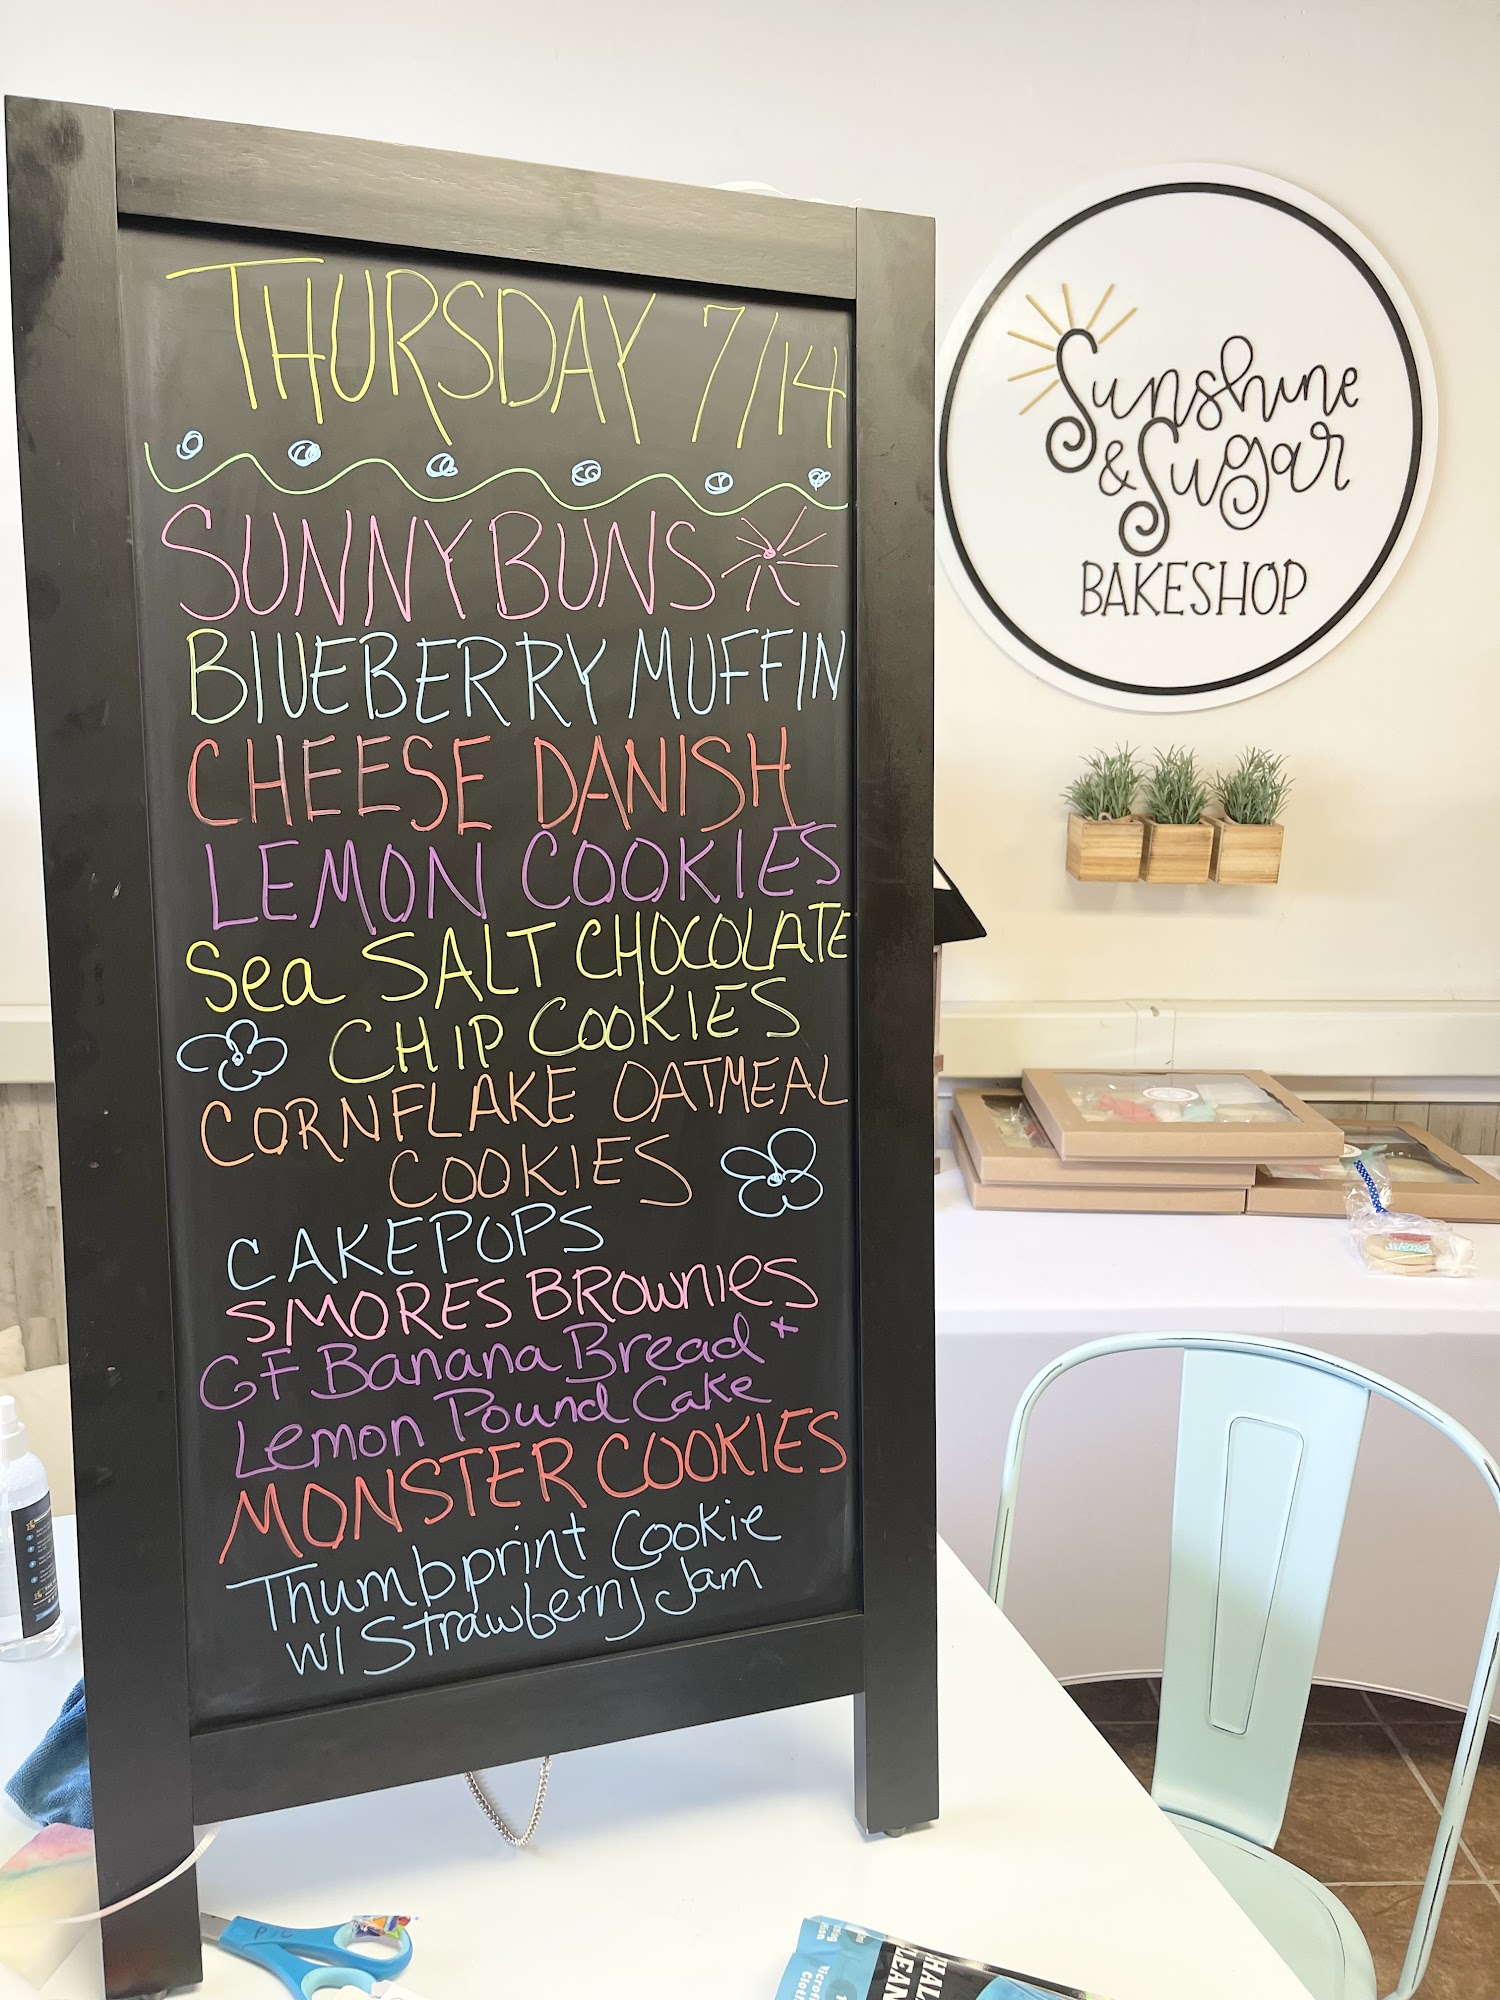 THURSDAY 7/14
SUNNY BUNS
BLUEBERRY MUFFIN
CHEESE DANISH
LEMON COOKIES
Sea SALT CHOCOLATE
CHIP COOKIES
CORNFLAKE OATMEAL
COOKIES
CAKEPOPS
SMORES BROWNIES
GF Banana Bread *
Lemon Pound Cake
MONSTER COOKIES
Thumbprint Cookie
w/ Strawberry Jam
Sunshine
& Sugar
BAKESHOP